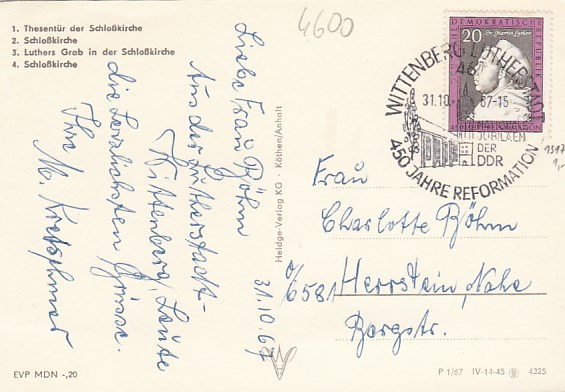 1. Thesentür der Schloßkirche
2. Schloßkirche
3. Luthers Grab in der Schloßkirche
4. Schloßkirche
4600
Liebe Frau Böhm
Aus der Lutherstadt-
Wittenberg, Leute
die herzlichsten Grüsse.
Ihre M. Kretschmar
31.10.67
Heldge-Verlag KG · Köthen/Anhalt
DEUTSCHE
DEMOKRATISCHE
REPUBLIK
20
Dr. Martin Luther
WITTENBERG LUTHERSTADT
A6
31.10 67-15
JUBILÄEN
DER
DDR
450 JAHRE REFORMATION
1317
1,-
Frau
Charlotte Böhm
6581 Herrstein, Nahe
Bergstr.
EVP MDN -,20
P 1/67 IV-14-45 4325